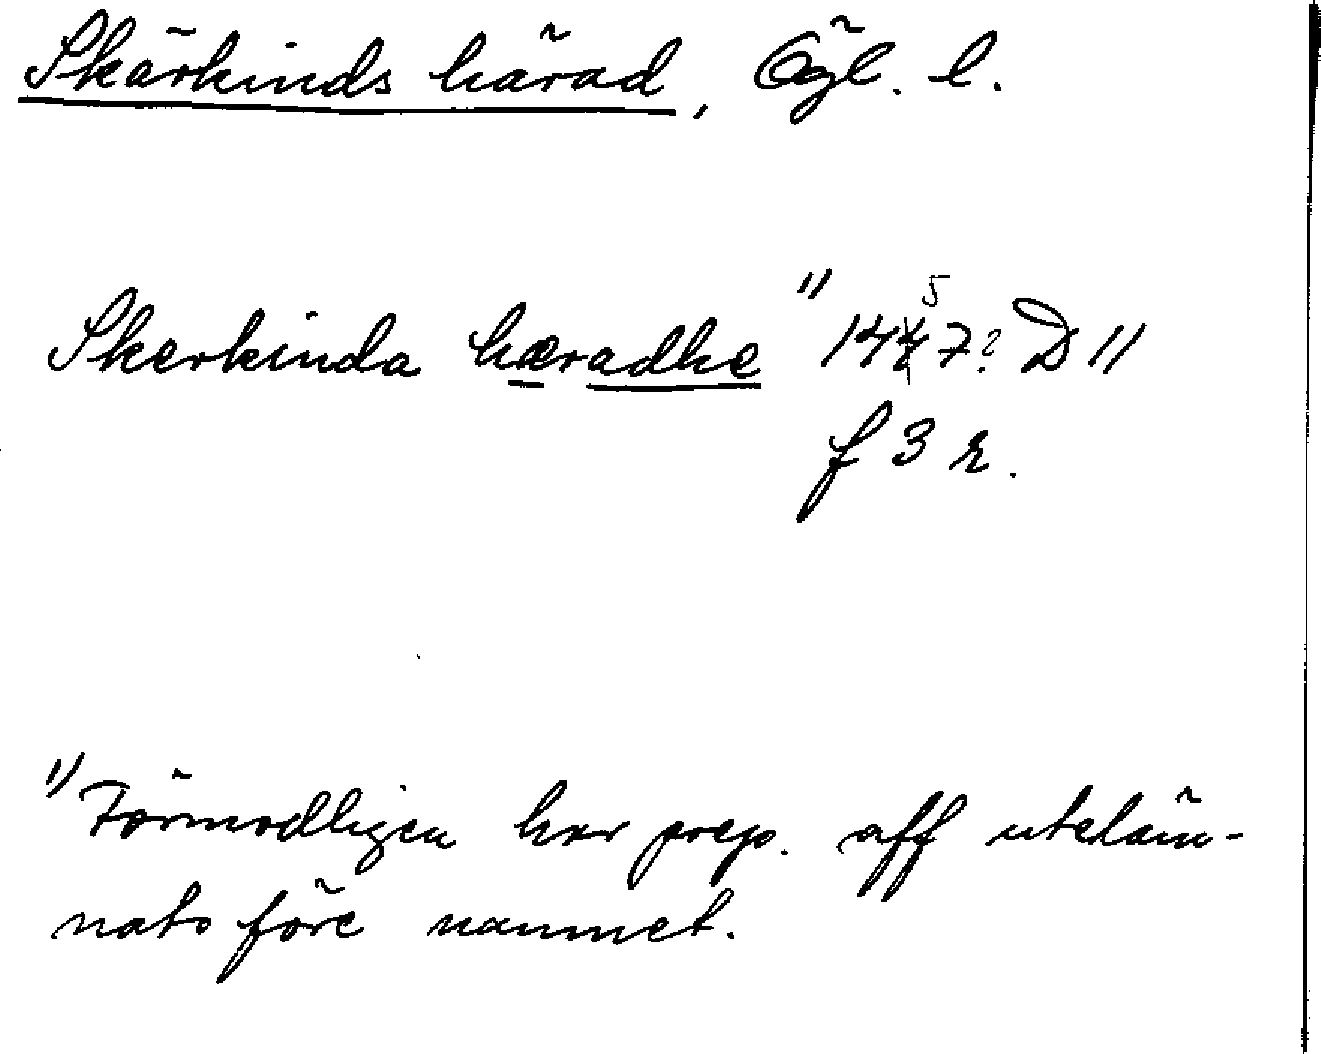 Skärkinds härad, Ögl. l.
Skerkinda hæradhe 1) 1457? D 11
f 3 r.
1) Förmodligen har prep. aff uteläm-
nats före namnet.